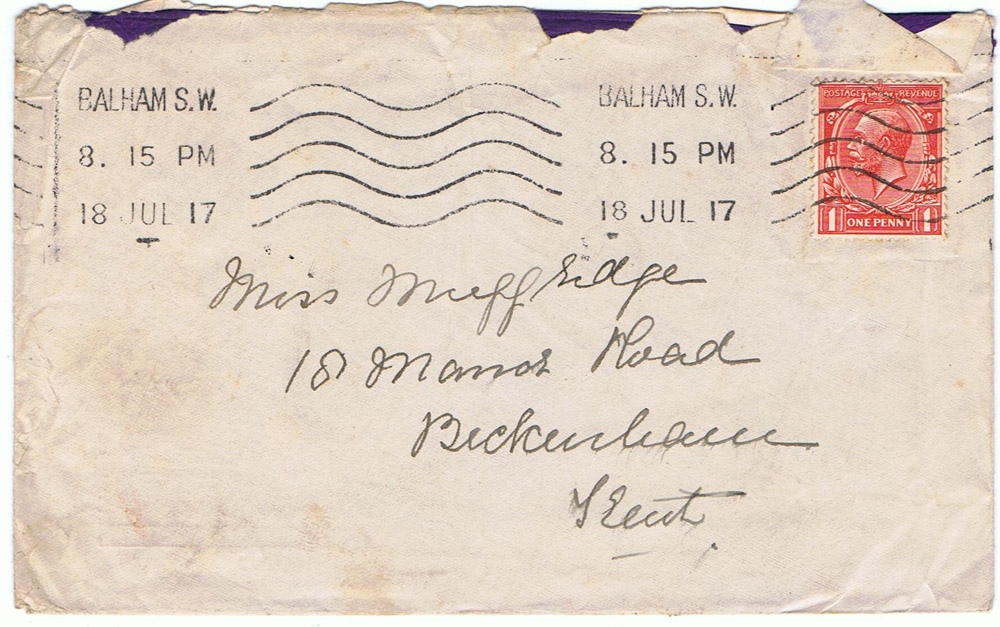 BALHAM S.W.
8. 15 PM
18 JUL 17
BALHAM S.W.
8. 15 PM
18 JUL 17
POSTAGE REVENUE
1 ONE PENNY 1
Miss Muggridge
18 Manor Road
Beckenham
Kent